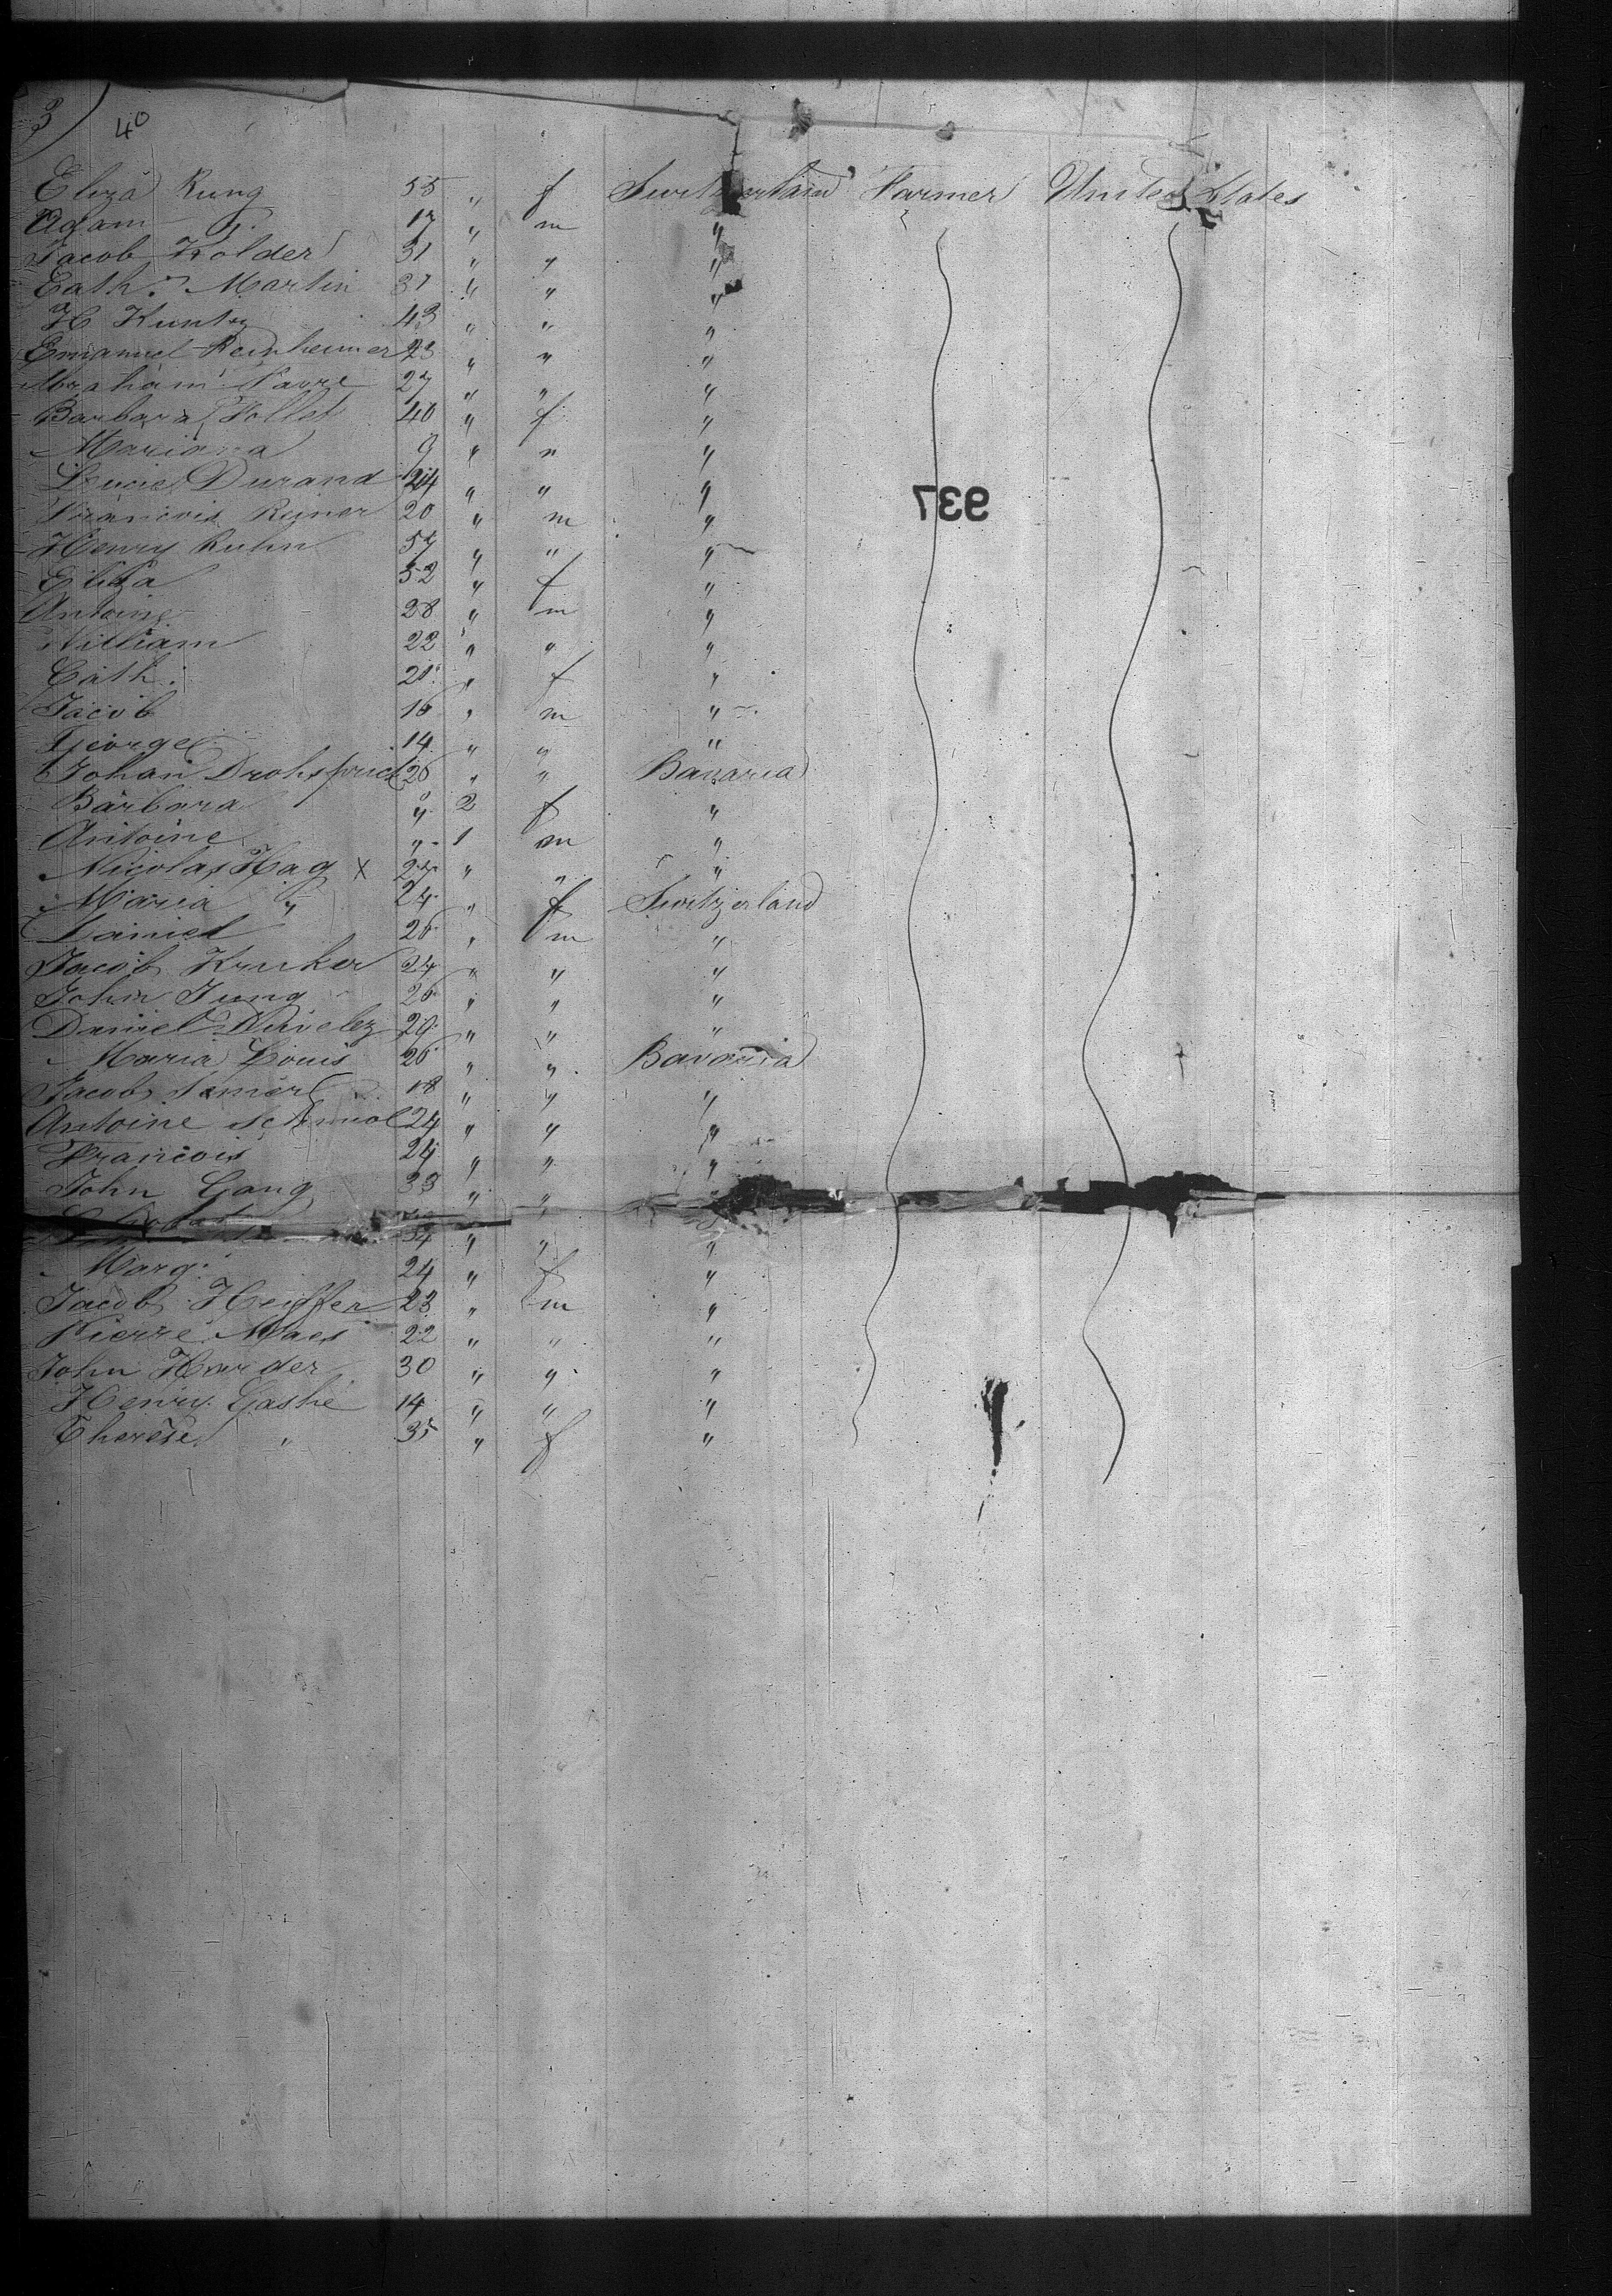 3) 40
Eliza Rung 55 " f Switzerland Farmer United States
Adam " 17 " m "
Jacob Kolder 31 " " "
Cath. Martin 37 " " "
H Kuntz 43 " " "
Emanuel Reinheimer 23 " " "
Abraham Favre 27 " " "
Barbara Follet 40 " f "
Mariana 9 " " "
Lucie Durand 24 " " "
Francois 20 " m "
Henry Kuhn 57 " " "
Eliza 52 " f "
Antoine 28 " m "
William 22 " " "
Cath. 21 " f "
Jacob 16 " m "
George 14 " " "
Johan 26 " " Bavaria
Barbara " 2 f "
Antoine " 1 m "
Nicolas Hag x 27 " " "
Maria " 24 " f Switzerland
Daniel 26 " m "
Jacob Kruker 24 " " "
John Jung 26 " " "
Daniel 29 " " "
Maria Louis 26 " " Bavaria
Jacob 18 " " "
Antoine 24 " " "
Francois 24 " " "
John Gang 33 " "
34 " " "
Marg. 24 " f "
Jacob Heiffer 23 " m "
Pierre Maes 22 " " "
John Harder 30 " " "
Henry Gashe 14 " " "
Therese " 35 " f "
937